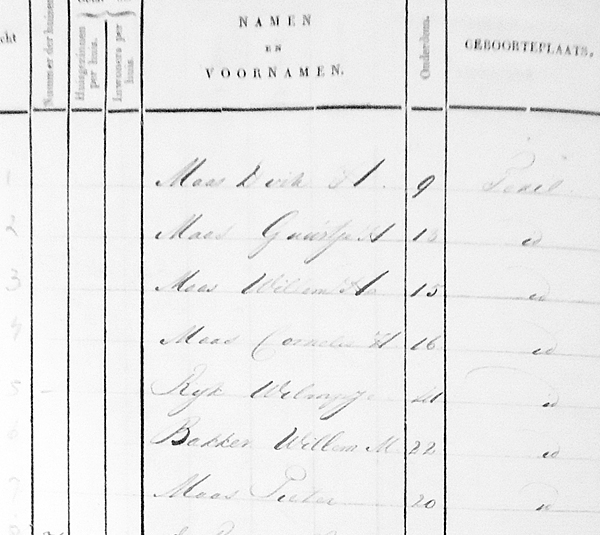 NAMEN
EN
VOORNAMEN.
Nummer der huizen
Huisgezinnen per huis.
Inwoners per huis.
Ouderdom.
GEBOORTEPLAATS.
1 Maas Dirk 9 Texel
2 Maas Guurtje 13 id
3 Maas Willem 15 id
4 Maas Cornelis 16 id
5 Ryk id
6 Bakker Willem M 22 id
7 Maas Pieter 20 id